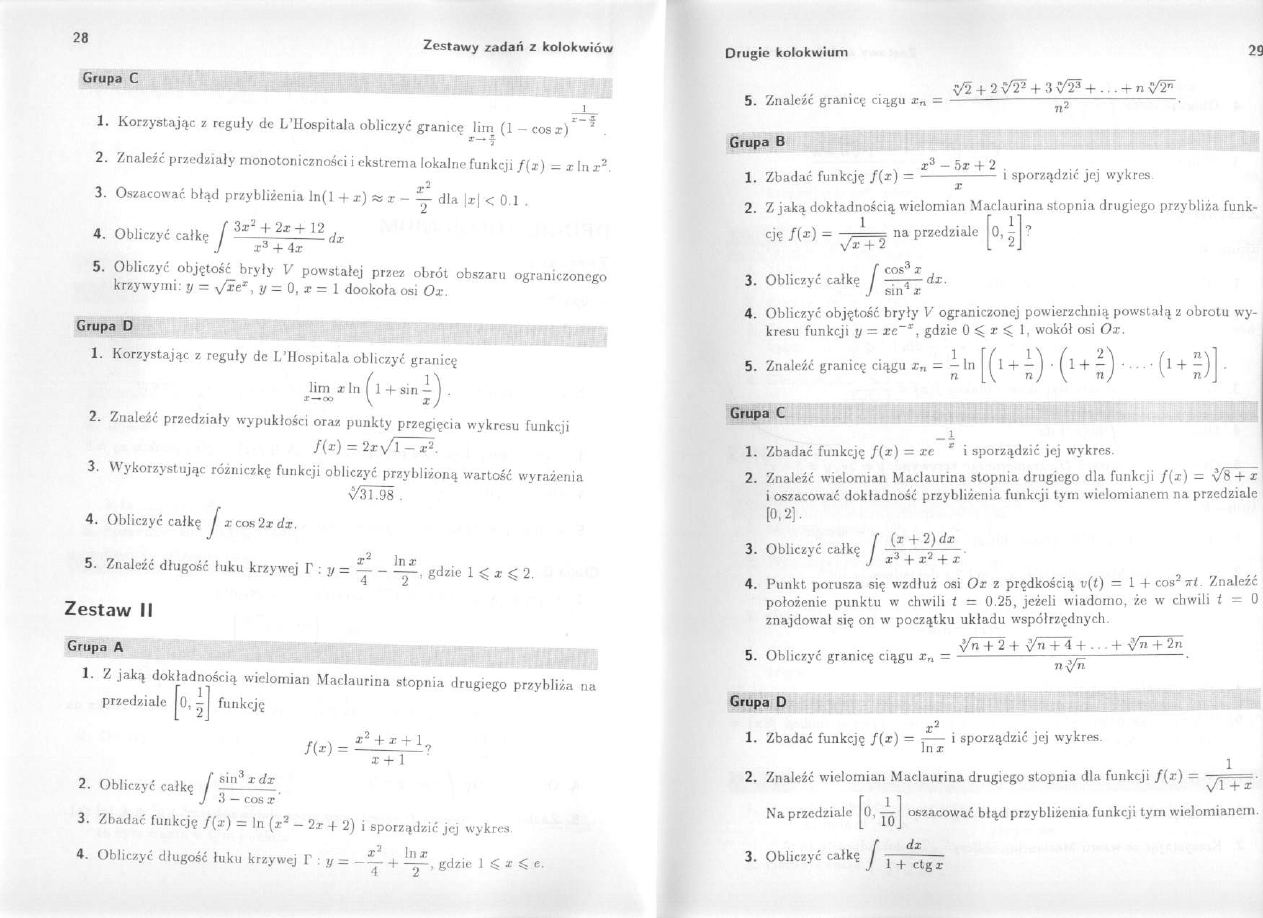 28
Zestawy zadań z kolokwiów
Grupa C
1. Korzystając z reguły de L'Hospitala obliczyć granicę lim_{x→π/2} (1 − cos x)^{1/(x − π/2)}.
2. Znaleźć przedziały monotoniczności i ekstrema lokalne funkcji f(x) = x ln x².
3. Oszacować błąd przybliżenia ln(1 + x) ≈ x − x²/2 dla |x| < 0.1 .
4. Obliczyć całkę ∫ (3x² + 2x + 12)/(x³ + 4x) dx
5. Obliczyć objętość bryły V powstałej przez obrót obszaru ograniczonego
krzywymi: y = √x eˣ, y = 0, x = 1 dookoła osi Ox.
Grupa D
1. Korzystając z reguły de L'Hospitala obliczyć granicę
lim_{x→∞} x ln (1 + sin 1/x) .
2. Znaleźć przedziały wypukłości oraz punkty przegięcia wykresu funkcji
f(x) = 2x√(1 − x²).
3. Wykorzystując różniczkę funkcji obliczyć przybliżoną wartość wyrażenia
⁵√31.98 .
4. Obliczyć całkę ∫ x cos 2x dx.
5. Znaleźć długość łuku krzywej Γ : y = x²/4 − ln x/2, gdzie 1 ⩽ x ⩽ 2.
Zestaw II
Grupa A
1. Z jaką dokładnością wielomian Maclaurina stopnia drugiego przybliża na
przedziale [0, 1/2] funkcję
f(x) = (x² + x + 1)/(x + 1)?
2. Obliczyć całkę ∫ sin³ x dx/(3 − cos x).
3. Zbadać funkcję f(x) = ln (x² − 2x + 2) i sporządzić jej wykres.
4. Obliczyć długość łuku krzywej Γ : y = −x²/4 + ln x/2, gdzie 1 ⩽ x ⩽ e.
Drugie kolokwium
29
5. Znaleźć granicę ciągu xₙ = (ⁿ√2 + 2 ⁿ√2² + 3 ⁿ√2³ + . . . + n ⁿ√2ⁿ)/n².
Grupa B
1. Zbadać funkcję f(x) = (x³ − 5x + 2)/x i sporządzić jej wykres.
2. Z jaką dokładnością wielomian Maclaurina stopnia drugiego przybliża funk-
cję f(x) = 1/√(x + 2) na przedziale [0, 1/2]?
3. Obliczyć całkę ∫ cos³ x/sin⁴ x dx.
4. Obliczyć objętość bryły V ograniczonej powierzchnią powstałą z obrotu wy-
kresu funkcji y = xe⁻ˣ, gdzie 0 ⩽ x ⩽ 1, wokół osi Ox.
5. Znaleźć granicę ciągu xₙ = 1/n ln [(1 + 1/n) · (1 + 2/n) · . . . · (1 + n/n)] .
Grupa C
1. Zbadać funkcję f(x) = xe^{−1/x} i sporządzić jej wykres.
2. Znaleźć wielomian Maclaurina stopnia drugiego dla funkcji f(x) = ³√(8 + x)
i oszacować dokładność przybliżenia funkcji tym wielomianem na przedziale
[0, 2] .
3. Obliczyć całkę ∫ (x + 2) dx/(x³ + x² + x).
4. Punkt porusza się wzdłuż osi Ox z prędkością v(t) = 1 + cos² πt. Znaleźć
położenie punktu w chwili t = 0.25, jeżeli wiadomo, że w chwili t = 0
znajdował się on w początku układu współrzędnych.
5. Obliczyć granicę ciągu xₙ = (³√(n + 2) + ³√(n + 4) + . . . + ³√(n + 2n))/(n ³√n).
Grupa D
1. Zbadać funkcję f(x) = x²/ln x i sporządzić jej wykres.
2. Znaleźć wielomian Maclaurina drugiego stopnia dla funkcji f(x) = 1/√(1 + x).
Na przedziale [0, 1/10] oszacować błąd przybliżenia funkcji tym wielomianem.
3. Obliczyć całkę ∫ dx/(1 + ctg x)